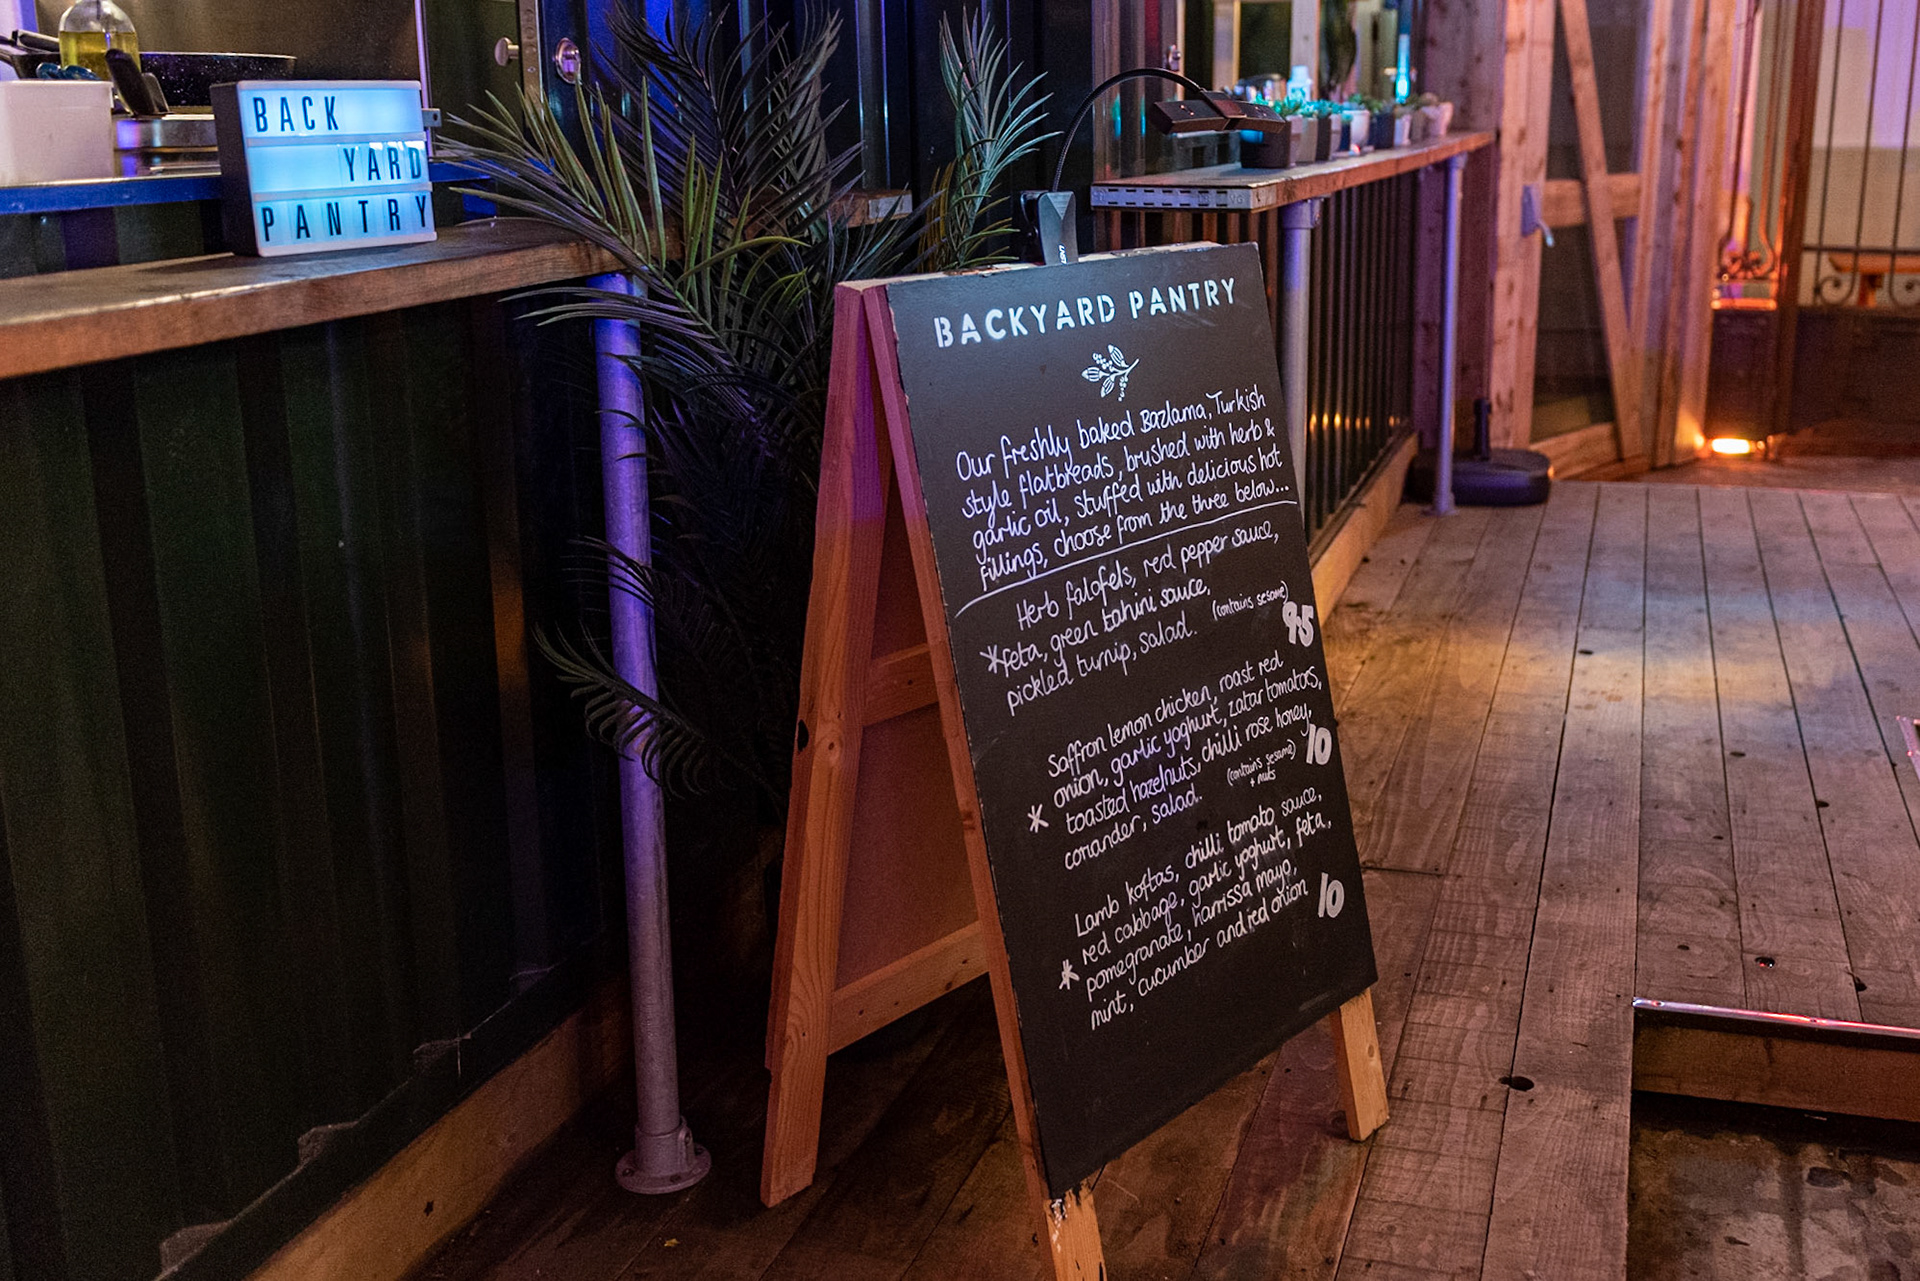 BACK
YARD
PANTRY
BACKYARD PANTRY
Our freshly baked Bazlama, Turkish
style flatbreads, brushed with herb &
garlic oil, stuffed with delicious hot
fillings, choose from the three below...
Herb falafels, red pepper sauce,
*feta, green tahini sauce,
pickled turnip, salad. (contains sesame) 9.5
Saffron lemon chicken, roast red
onion, garlic yoghurt, zatar tomatoes,
* toasted hazelnuts, chilli rose honey,
coriander, salad. (contains sesame) 10
+ nuts
Lamb koftas, chilli tomato sauce,
red cabbage, garlic yoghurt, feta,
* pomegranate, harrissa mayo,
mint, cucumber and red onion 10